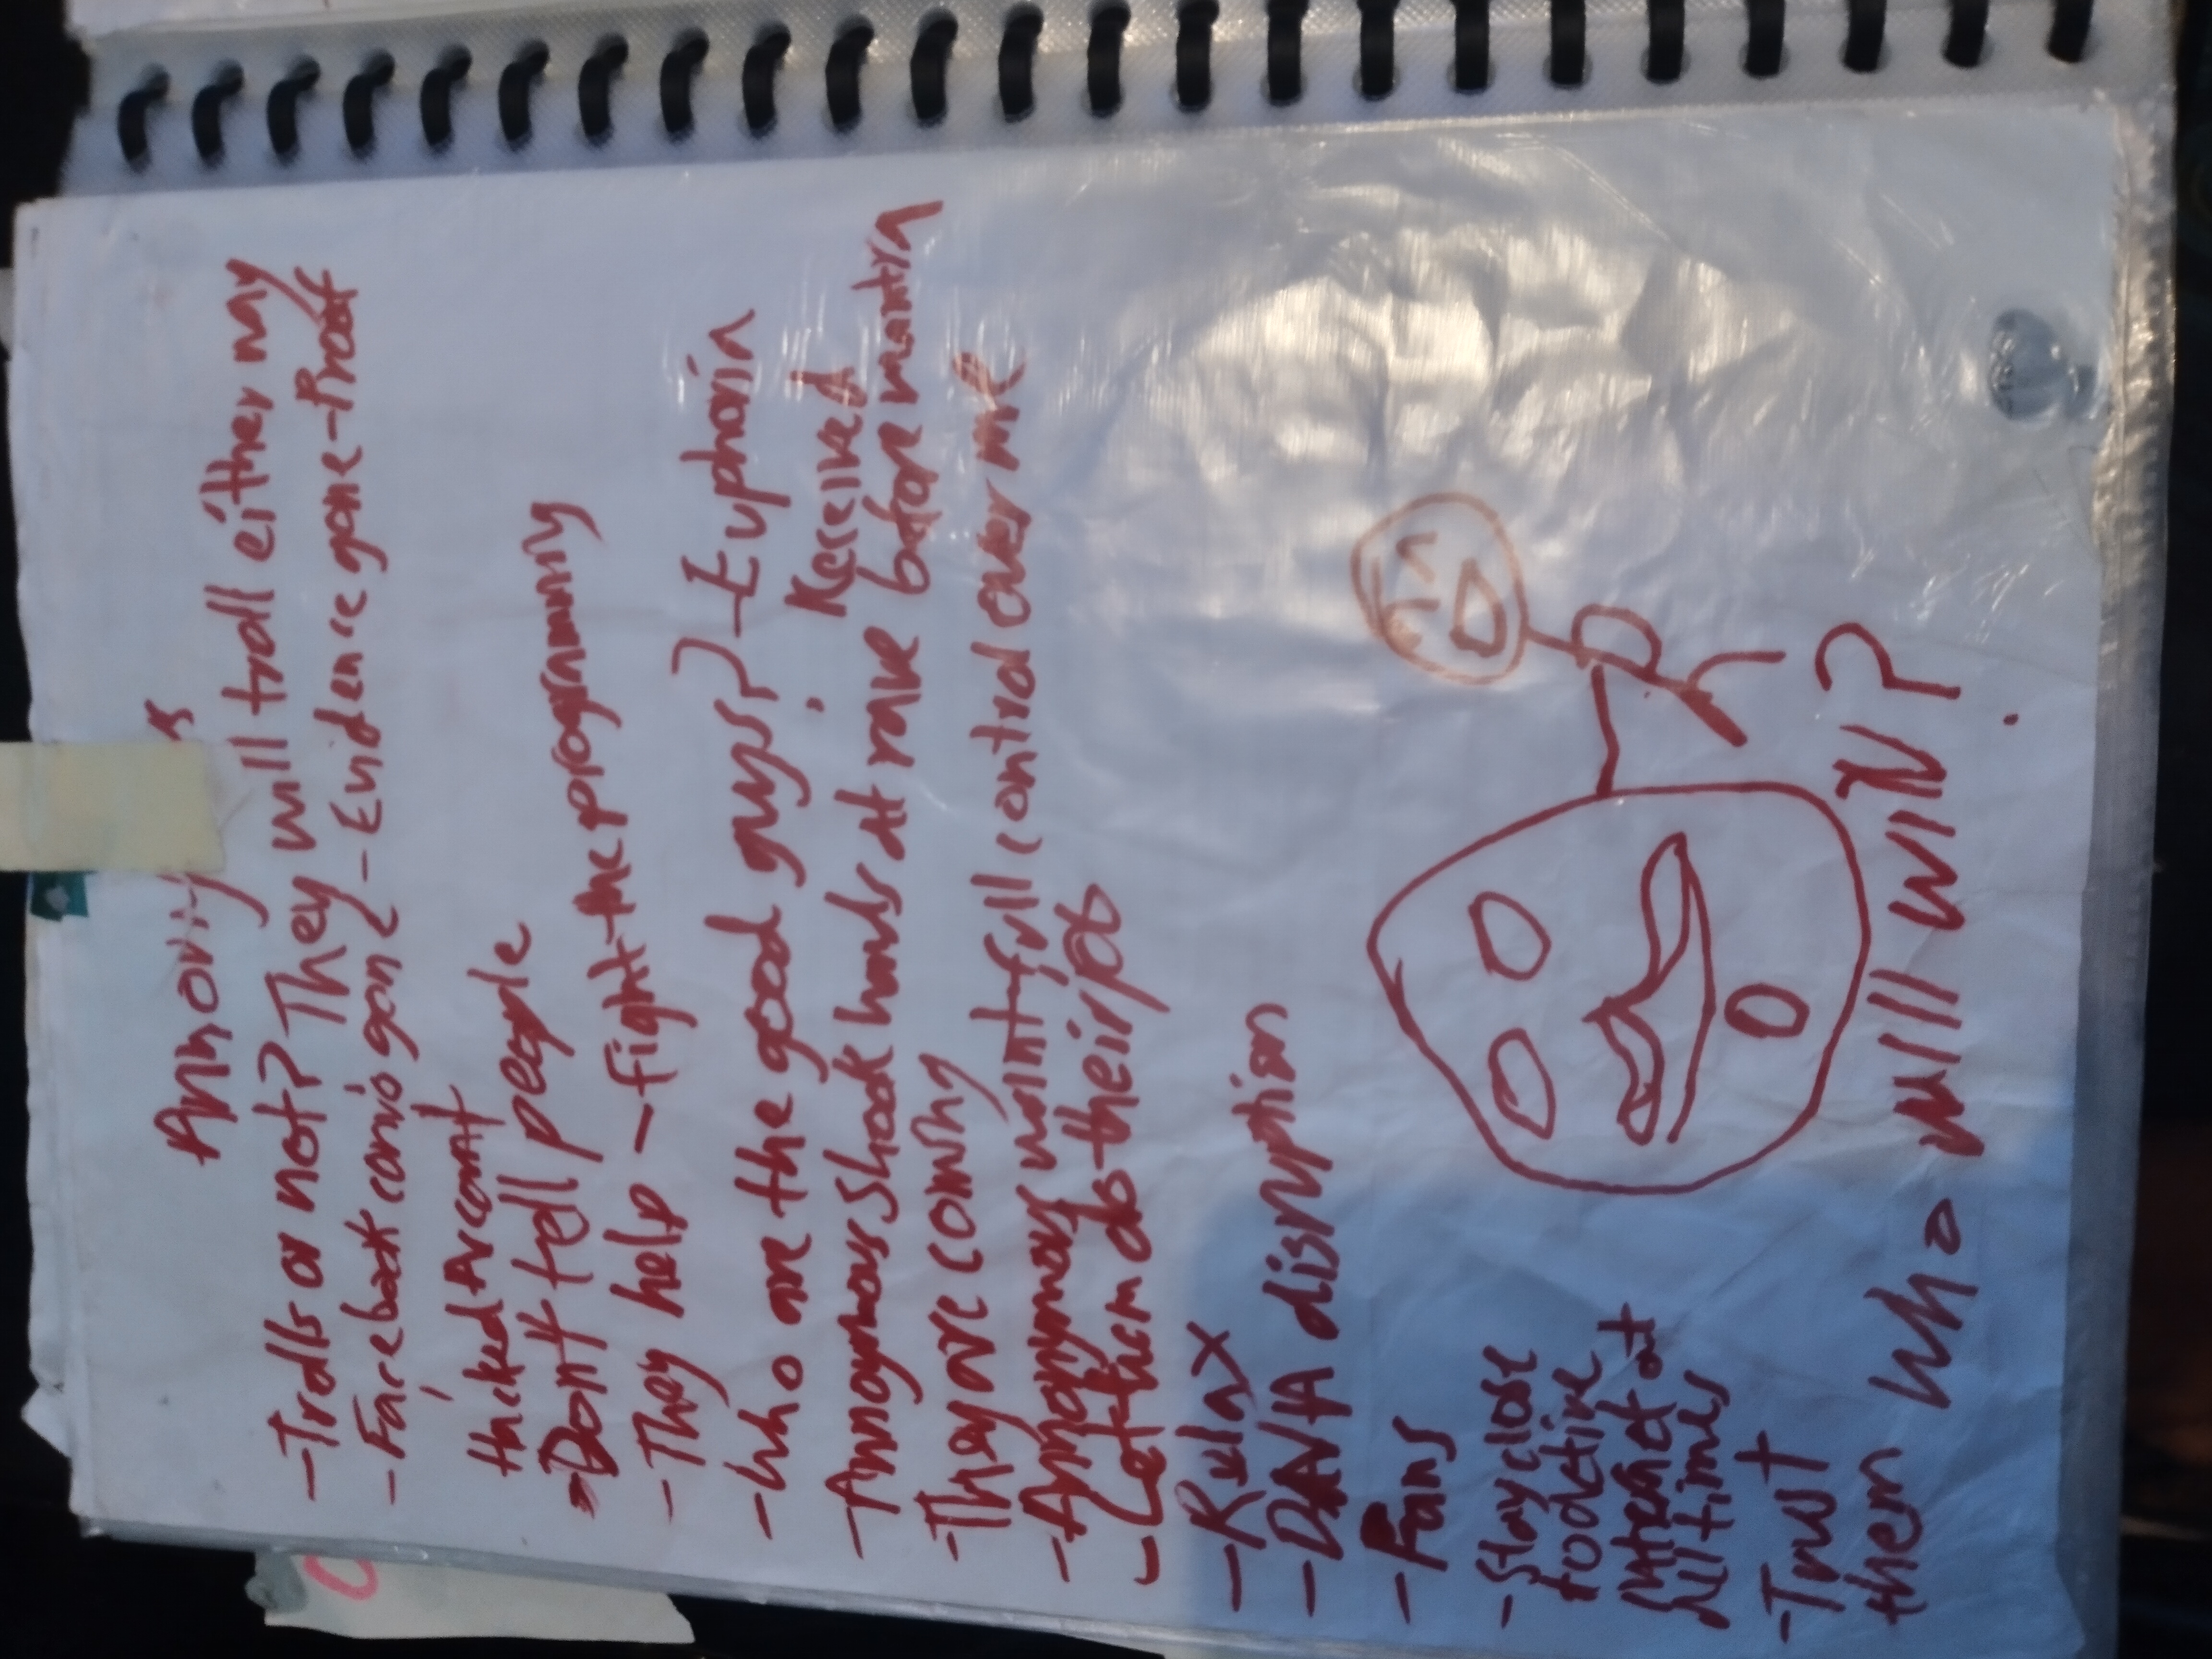 - Trolls or not? They will troll either way
- Facebook convo gone - Evidence gone - Proof
Hacked Account
- Don't tell people
- They help - Fight the programming
- Who are the good guys? - Euphoria
- Anonymous shook hands at rave before mantra
Received
- They are coming
- Anonymous want full control over me
- Let them do their job
- Relax
- DNA disruption
- Fans
- Stay close
to active
internet at
all times
- Trust
them
Who will win?